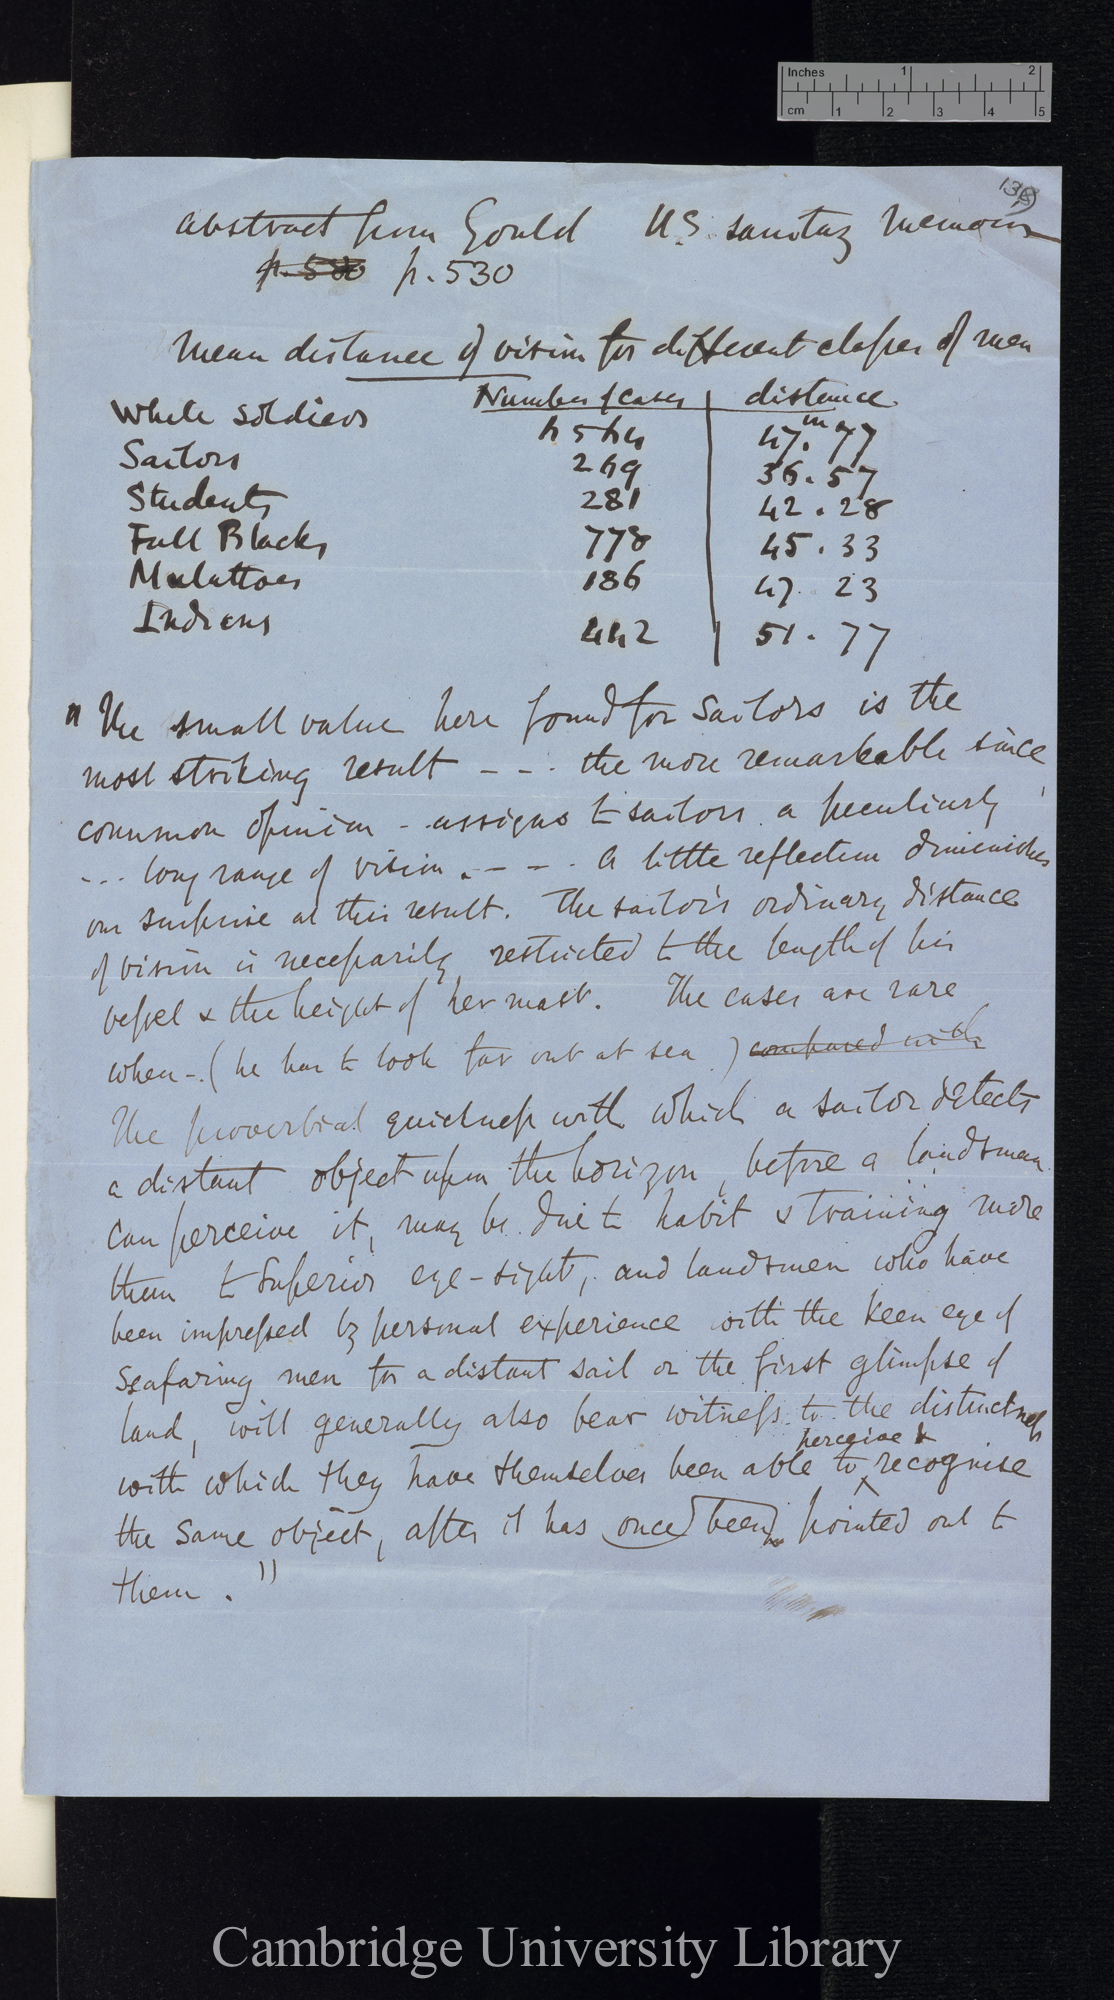 Inches 1 2
cm 1 2 3 4 5
139
Abstract from Gould U.S. sanitary Memoirs
p. 530 p. 530
Mean distance of vision for different classes of men
Number of cases distance
White soldiers 6564 47.77
in
Sailors 269 36.57
Students 281 42.28
Full Blacks 778 45.33
Mulattoes 186 47.23
Indians 442 51.77
"The small value here found for Sailors is the
most striking result - - . the more remarkable since
common opinion - . assigns to sailors a peculiarly
- . . . long range of vision . - - . A little reflection diminishes
our surprise at this result. The sailor's ordinary distance
of vision is necessarily restricted to the length of his
vessel & the height of her mast. The cases are rare
when - . ( he has to look far out at sea ) compared with
The proverbial quickness with which a sailor detects
a distant object upon the horizon, before a landsman
can perceive it, may be due to habit & training more
than to Superior eye-sight, and landsmen who have
been impressed by personal experience with the keen eye of
Seafaring men for a distant sail or the first glimpse of
land, will generally also bear witness to the distinctness
perceive &
with which they have themselves been able to recognise
the same object, after it has once been pointed out to
them."
Cambridge University Library